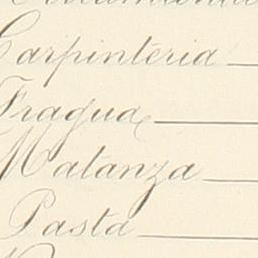 Carpintería
Fragua
Matanza
Pasta